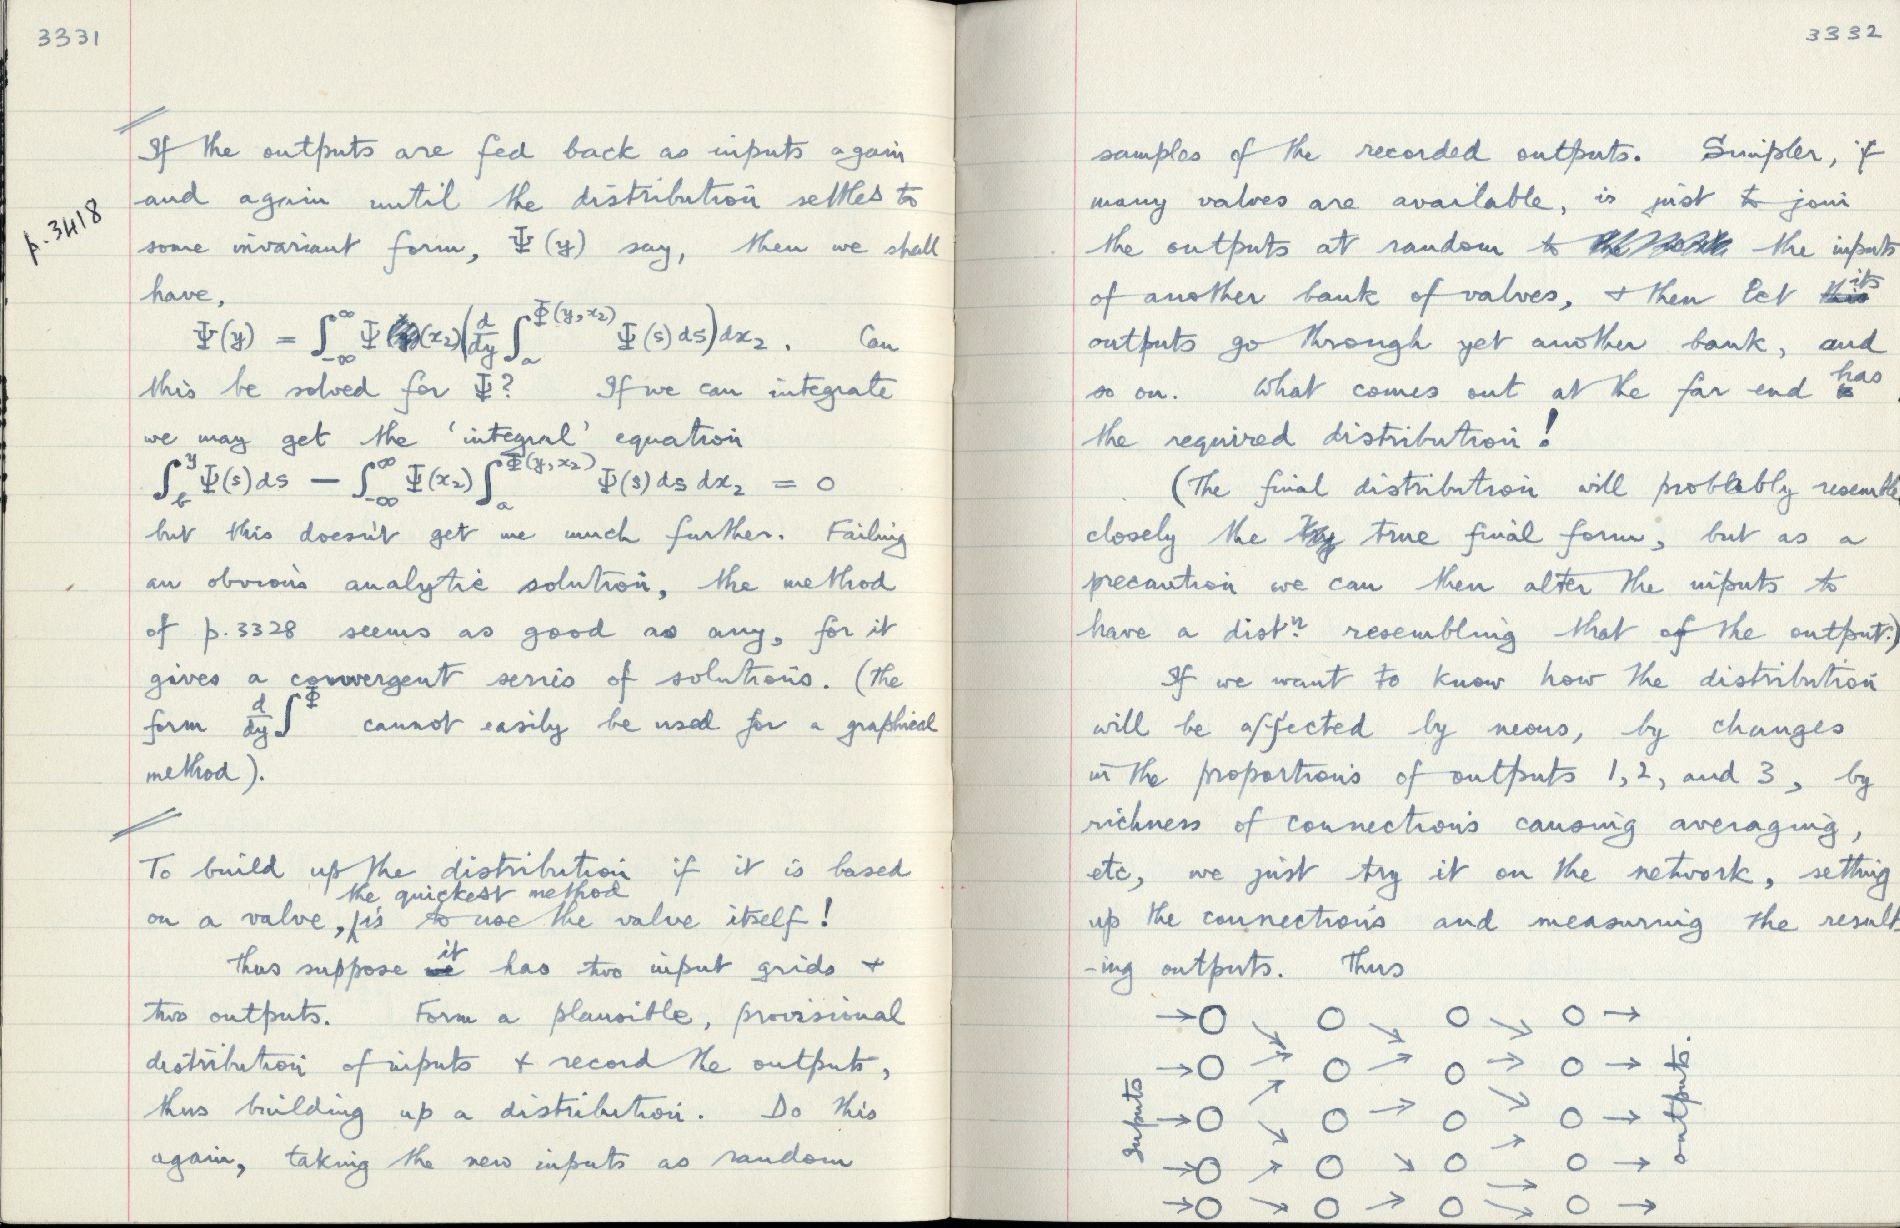 3331
If the outputs are fed back as inputs again
and again until the distribution settles to
p. 3418
some invariant form, Ψ(y) say, then we shall
have,
Ψ(y) = ∫_{-∞}^{∞} Ψ(x₂)(d/dy ∫_a^{Φ(y,x₂)} Ψ(s)ds)dx₂. Can
this be solved for Ψ? If we can integrate
we may get the 'integral' equation
∫_b^y Ψ(s)ds − ∫_{-∞}^{∞} Ψ(x₂) ∫_a^{Φ(y,x₂)} Ψ(s)ds dx₂ = 0
but this doesn't get me much further. Failing
an obvious analytic solution, the method
of p. 3328 seems as good as any, for it
gives a convergent series of solutions. (the
form d/dy ∫^Φ cannot easily be used for a graphical
method).
To build up the distribution if it is based
the quickest method
on a valve, is to use the valve itself!
Thus suppose it has two input grids +
two outputs. Form a plausible, provisional
distribution of inputs + record the outputs,
thus building up a distribution. Do this
again, taking the new inputs as random
3332
samples of the recorded outputs. Simpler, if
many valves are available, is just to join
the outputs at random to the inputs
of another bank of valves, + then let its
outputs go through yet another bank, and
so on. What comes out at the far end has
the required distribution!
(The final distribution will probbably resemble
closely the true final form, but as a
precaution we can then alter the inputs to
have a distⁿ. resembling that of the output.)
If we want to know how the distribution
will be affected by neons, by changes
in the proportions of outputs 1, 2, and 3, by
richness of connections causing averaging,
etc, we just try it on the network, setting
up the connections and measuring the result
-ing outputs. Thus
Inputs
outputs.